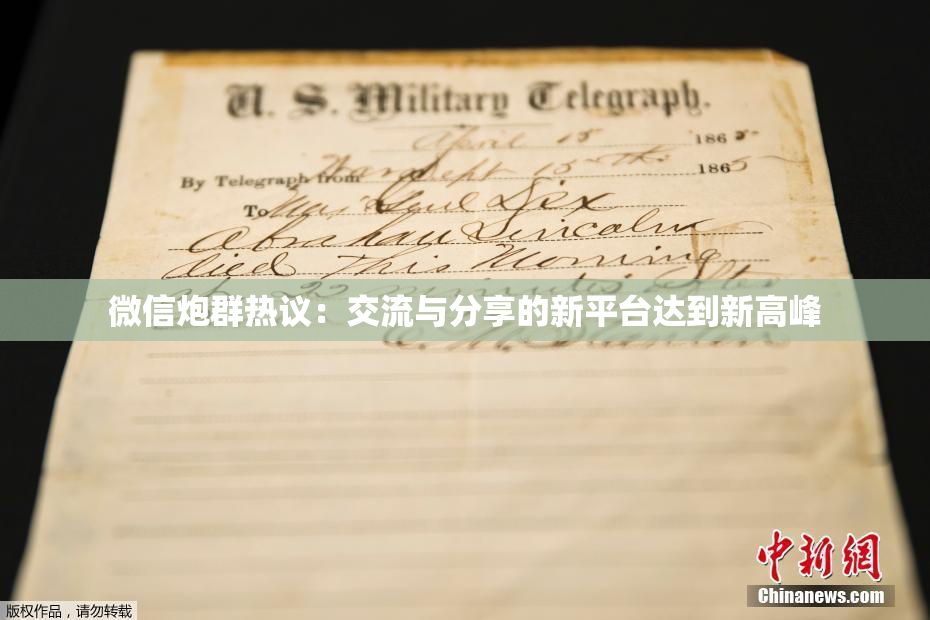 U. S. Military Telegraph.
April 15 1865
By Telegraph from War Dept 15th 1865
To Maj Genl Dix
Abraham Lincoln
died This Morning
at 22 minutes after
微信炮群热议：交流与分享的新平台达到新高峰
E. M. Stanton
中新网
Chinanews.com
版权作品，请勿转载